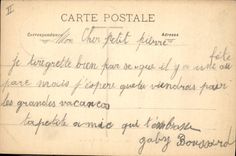 II
CARTE POSTALE
Correspondance Adresse
Mon Cher petit pierre
je regrette bien par se que il y a une fête
pare mais j'espere que tu viendras pour
les grandes vacances
ta petite amie qui t'embrasse
gaby Boussard